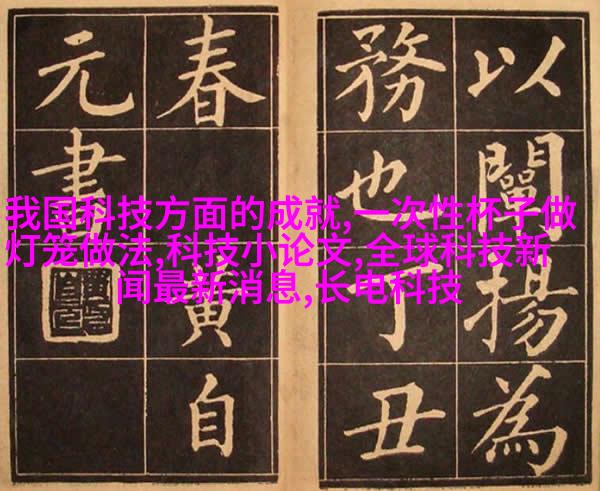 以闡揚為
務也丁丑
春黃自
元書
我国科技方面的成就,一次性杯子做
灯笼做法,科技小论文,全球科技新
闻最新消息,长电科技